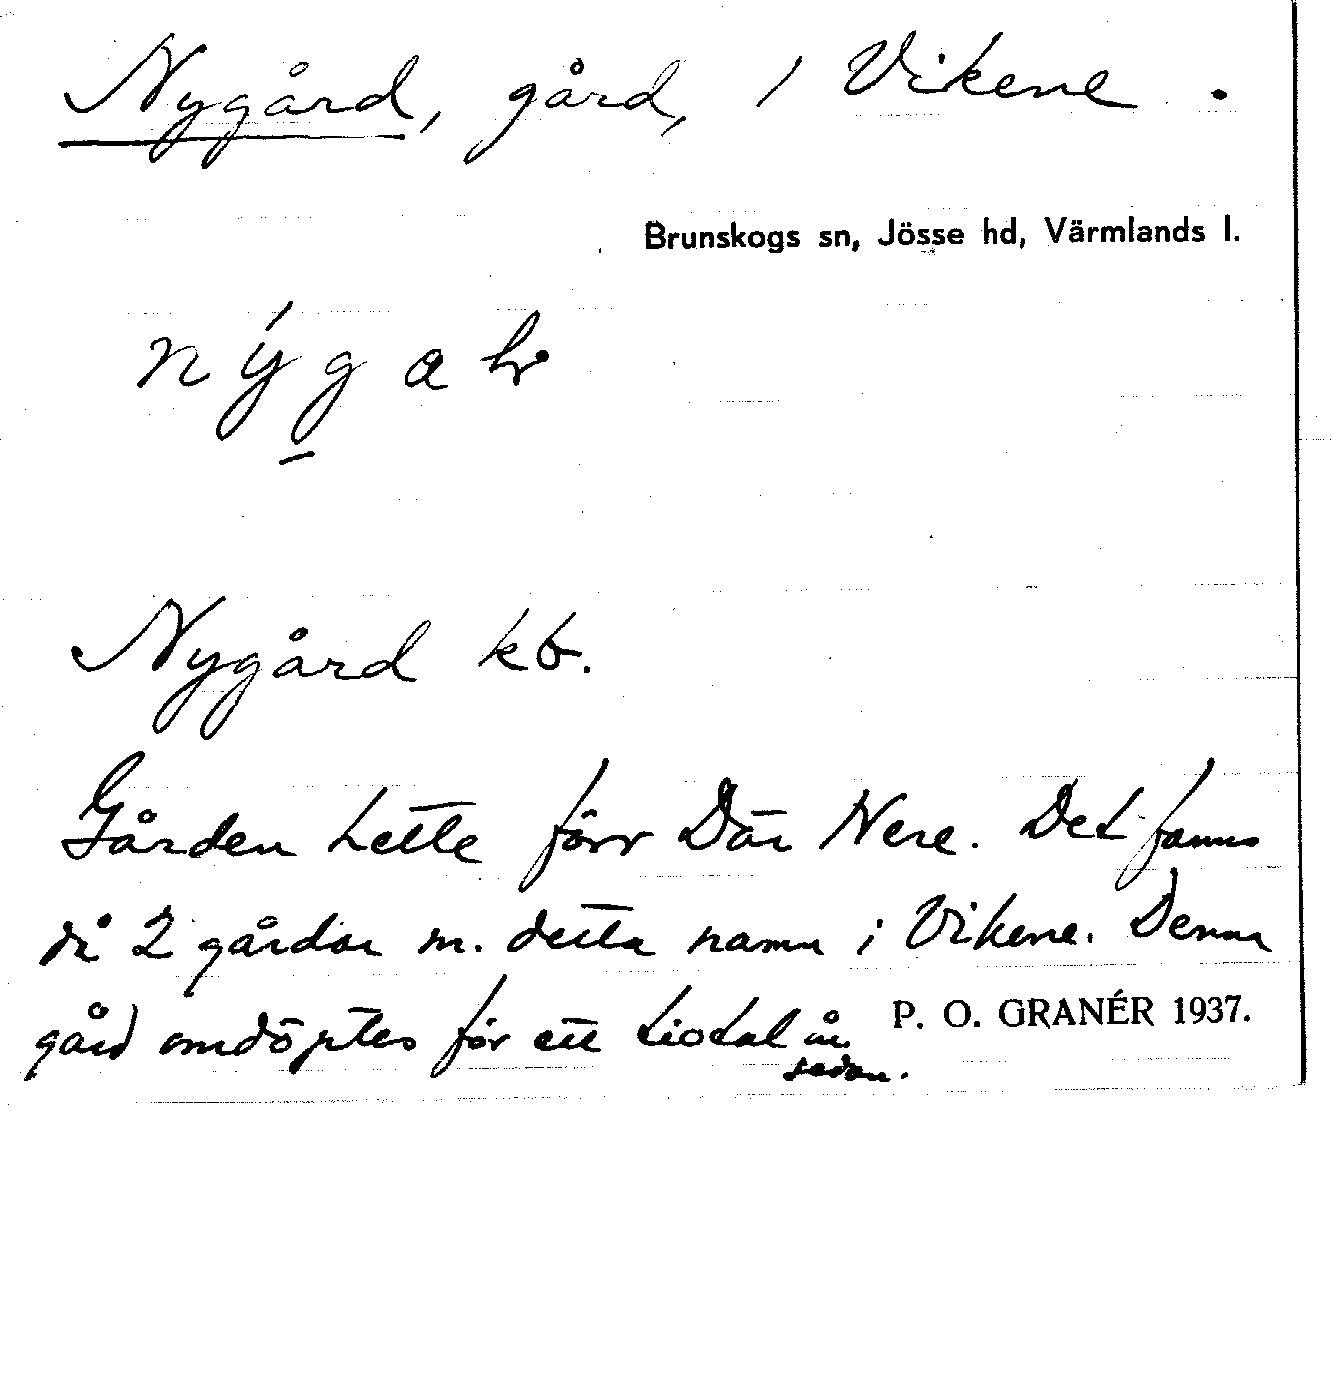 Nygård, gård, i Vikene.
Brunskogs sn, Jösse hd, Värmlands l.
Nygård kb.
Gården hette förr Där Nere. Det fanns
då 2 gårdar m. detta namn i Vikene. Denna
gård omdöptes för ett tiotal år
sedan.
P. O. GRANÉR 1937.